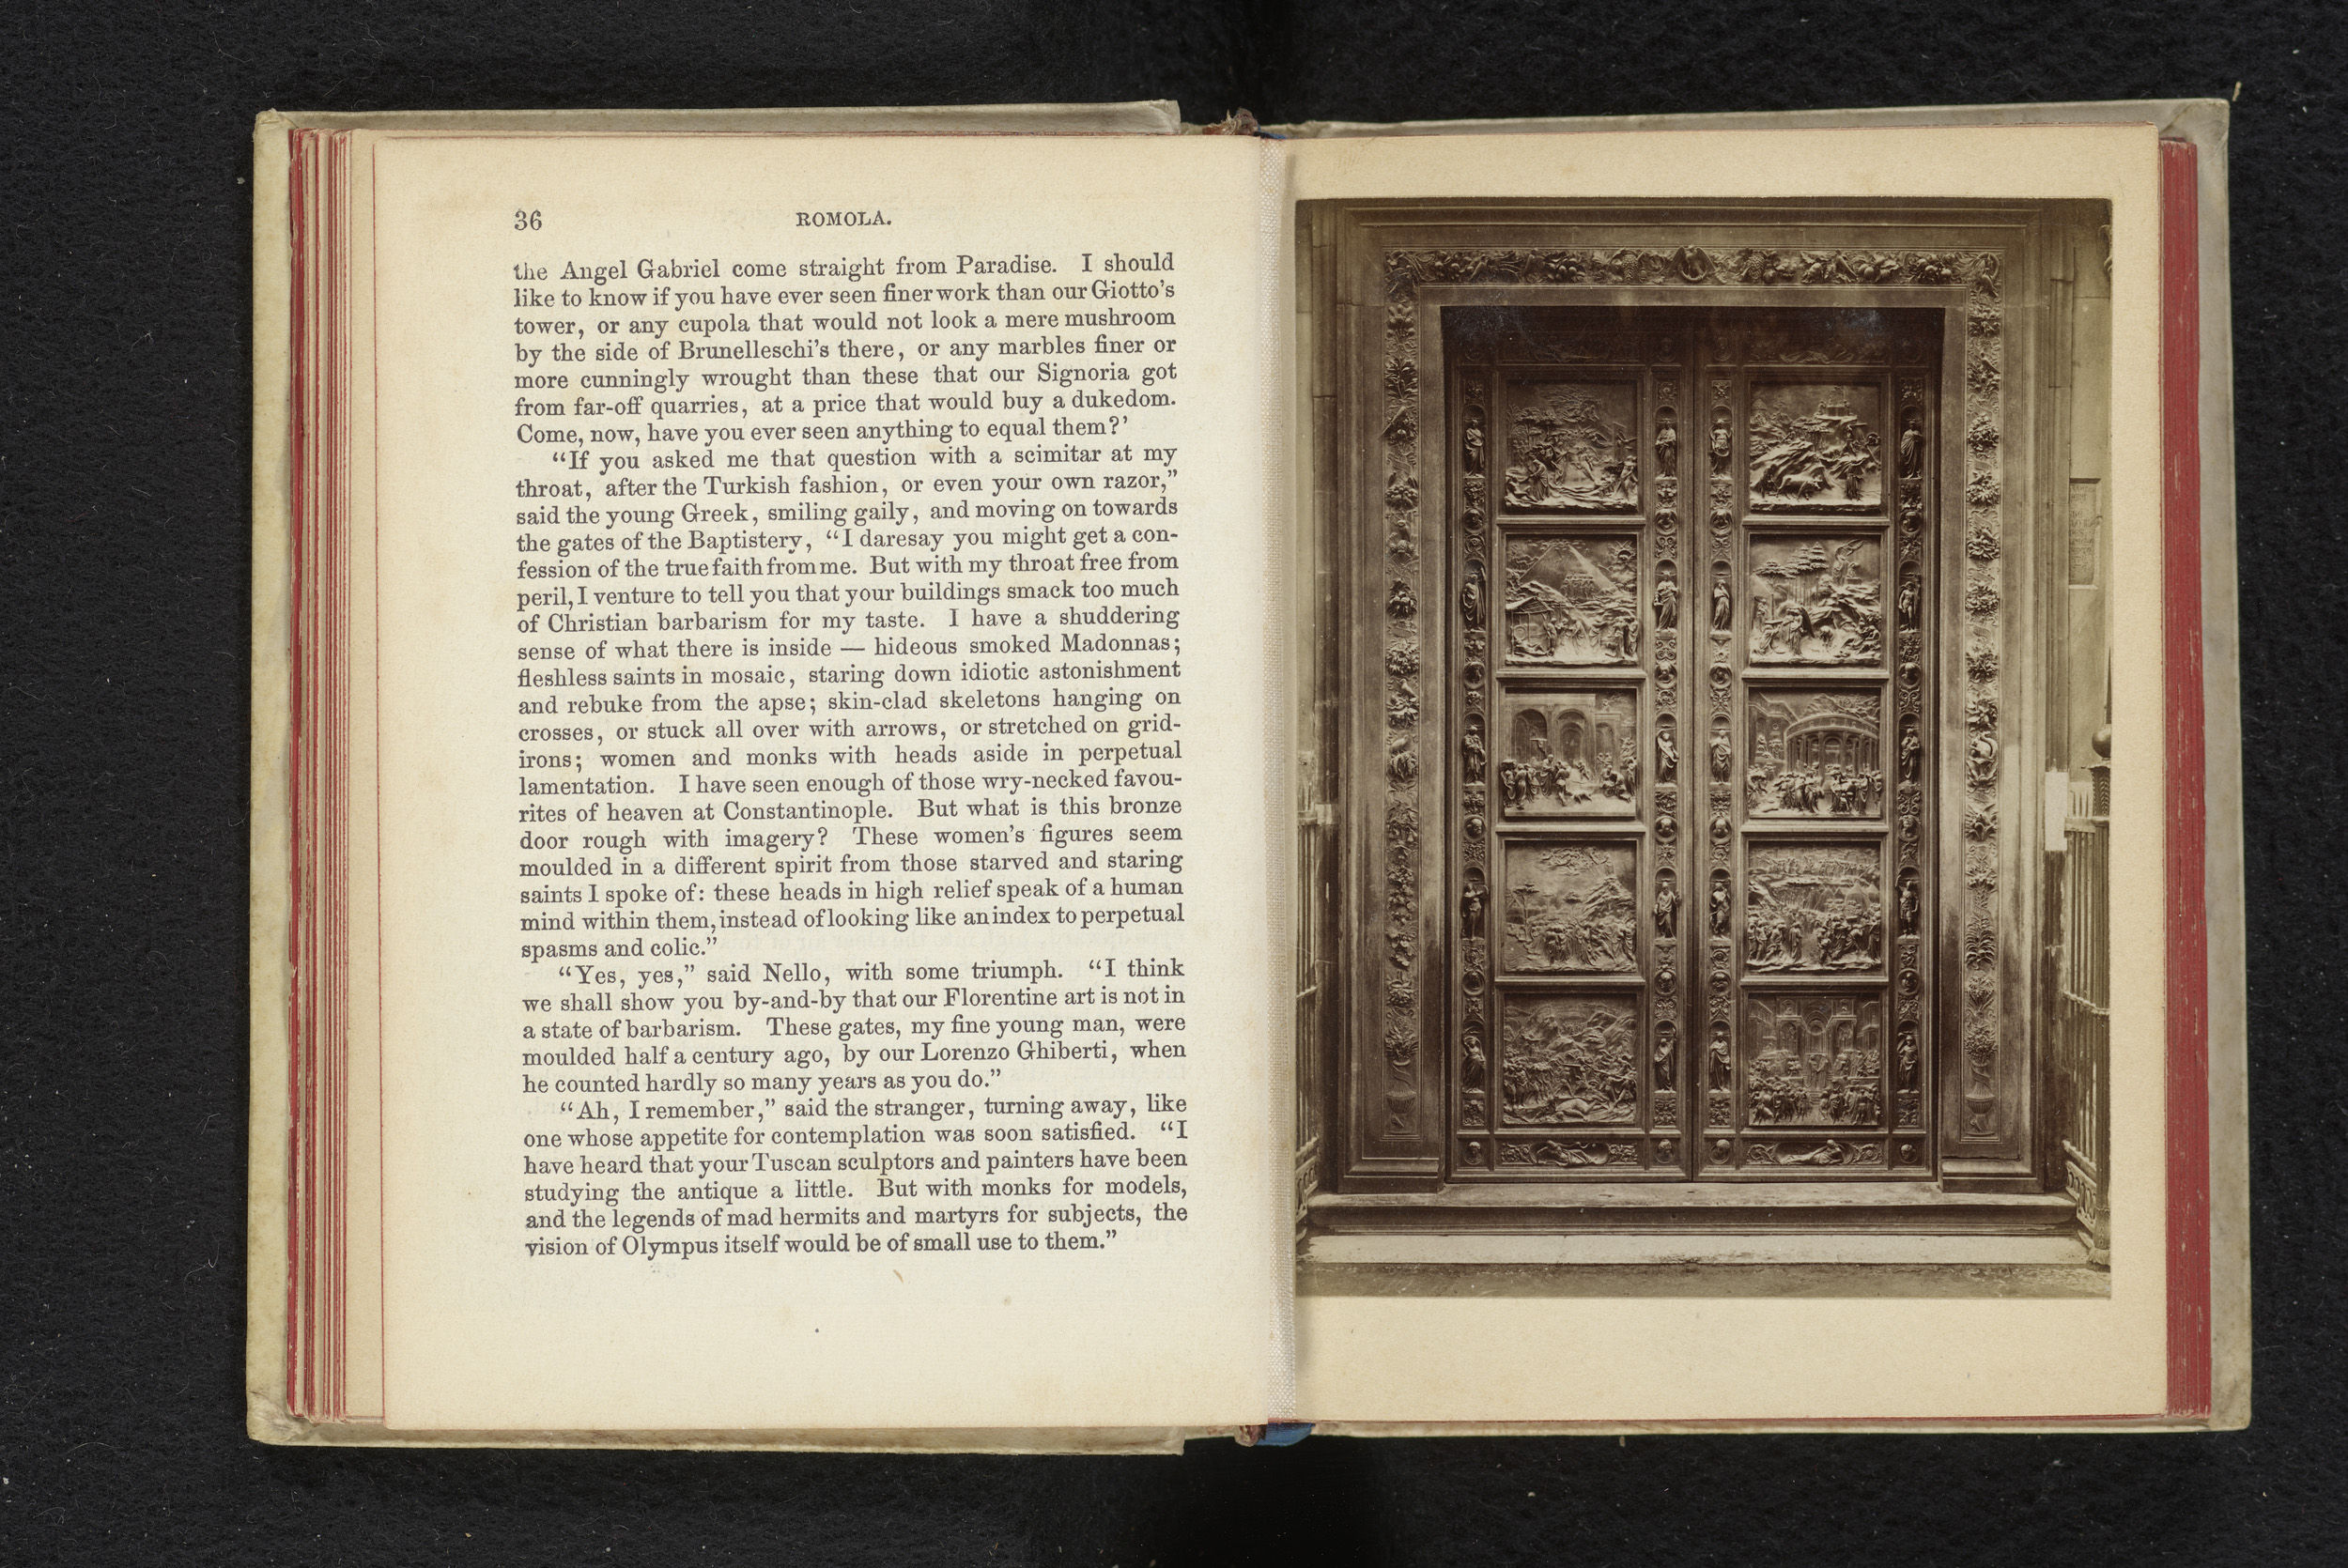 36 ROMOLA.
the Angel Gabriel come straight from Paradise. I should
like to know if you have ever seen finer work than our Giotto's
tower, or any cupola that would not look a mere mushroom
by the side of Brunelleschi's there, or any marbles finer or
more cunningly wrought than these that our Signoria got
from far-off quarries, at a price that would buy a dukedom.
Come, now, have you ever seen anything to equal them?'
“If you asked me that question with a scimitar at my
throat, after the Turkish fashion, or even your own razor,”
said the young Greek, smiling gaily, and moving on towards
the gates of the Baptistery, “I daresay you might get a con-
fession of the true faith from me. But with my throat free from
peril, I venture to tell you that your buildings smack too much
of Christian barbarism for my taste. I have a shuddering
sense of what there is inside — hideous smoked Madonnas;
fleshless saints in mosaic, staring down idiotic astonishment
and rebuke from the apse; skin-clad skeletons hanging on
crosses, or stuck all over with arrows, or stretched on grid-
irons; women and monks with heads aside in perpetual
lamentation. I have seen enough of those wry-necked favou-
rites of heaven at Constantinople. But what is this bronze
door rough with imagery? These women's figures seem
moulded in a different spirit from those starved and staring
saints I spoke of: these heads in high relief speak of a human
mind within them, instead of looking like an index to perpetual
spasms and colic.”
“Yes, yes,” said Nello, with some triumph. “I think
we shall show you by-and-by that our Florentine art is not in
a state of barbarism. These gates, my fine young man, were
moulded half a century ago, by our Lorenzo Ghiberti, when
he counted hardly so many years as you do.”
“Ah, I remember,” said the stranger, turning away, like
one whose appetite for contemplation was soon satisfied. “I
have heard that your Tuscan sculptors and painters have been
studying the antique a little. But with monks for models,
and the legends of mad hermits and martyrs for subjects, the
vision of Olympus itself would be of small use to them.”